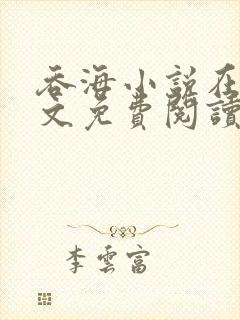 吞海小説在
文免費閲讀
李雲富